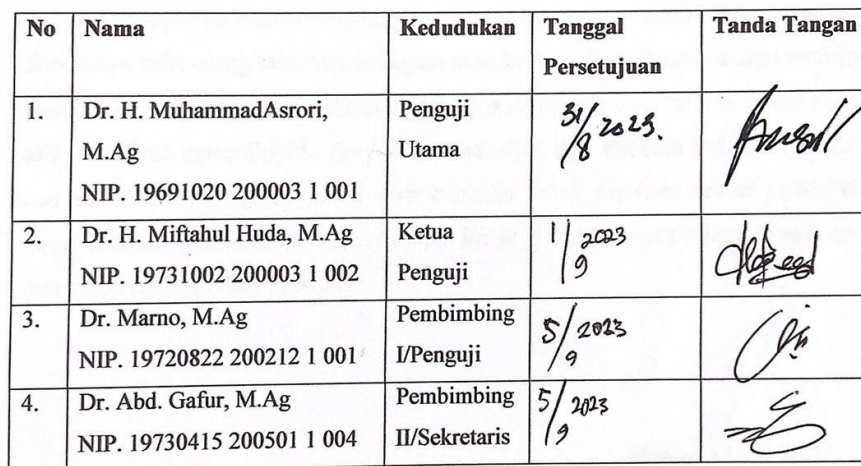 No Nama Kedudukan Tanggal Persetujuan Tanda Tangan
1. Dr. H. MuhammadAsrori, M.Ag
NIP. 19691020 200003 1 001
Penguji Utama
31/8 2023.
2. Dr. H. Miftahul Huda, M.Ag
NIP. 19731002 200003 1 002
Ketua Penguji
1/9 2023
3. Dr. Marno, M.Ag
NIP. 19720822 200212 1 001
Pembimbing I/Penguji
5/9 2023
4. Dr. Abd. Gafur, M.Ag
NIP. 19730415 200501 1 004
Pembimbing II/Sekretaris
5/9 2023